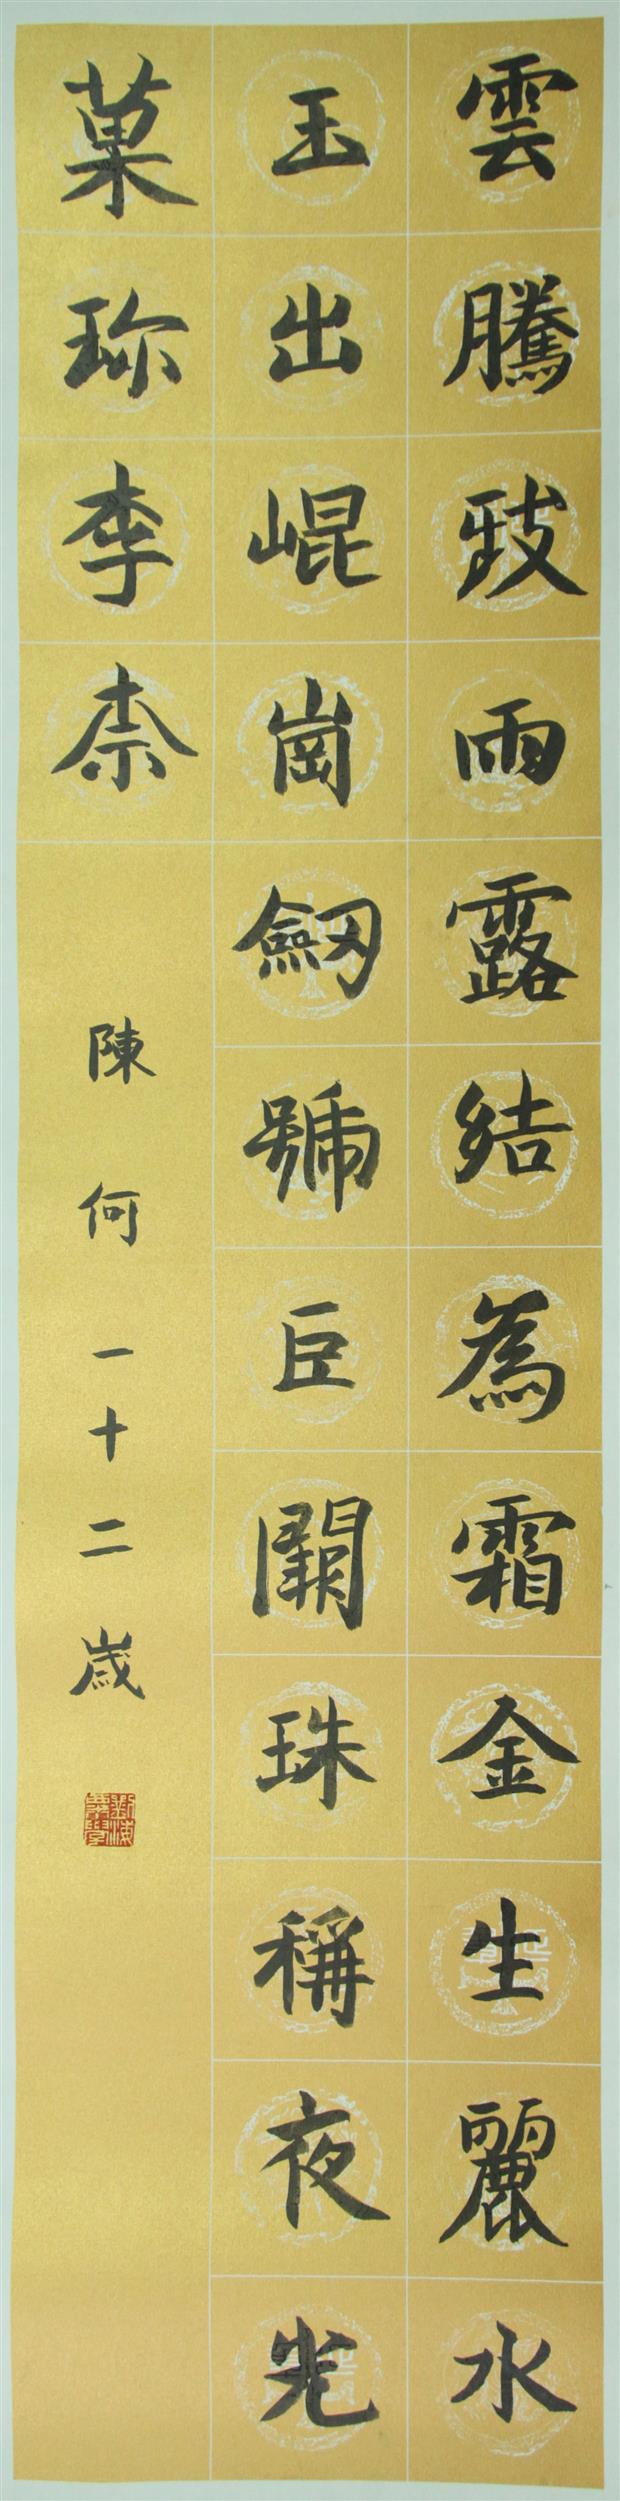 雲騰致雨露結為霜金生麗水
玉出崐崗劒號巨闕珠稱夜光
菓珎李柰
陳何一十二歲